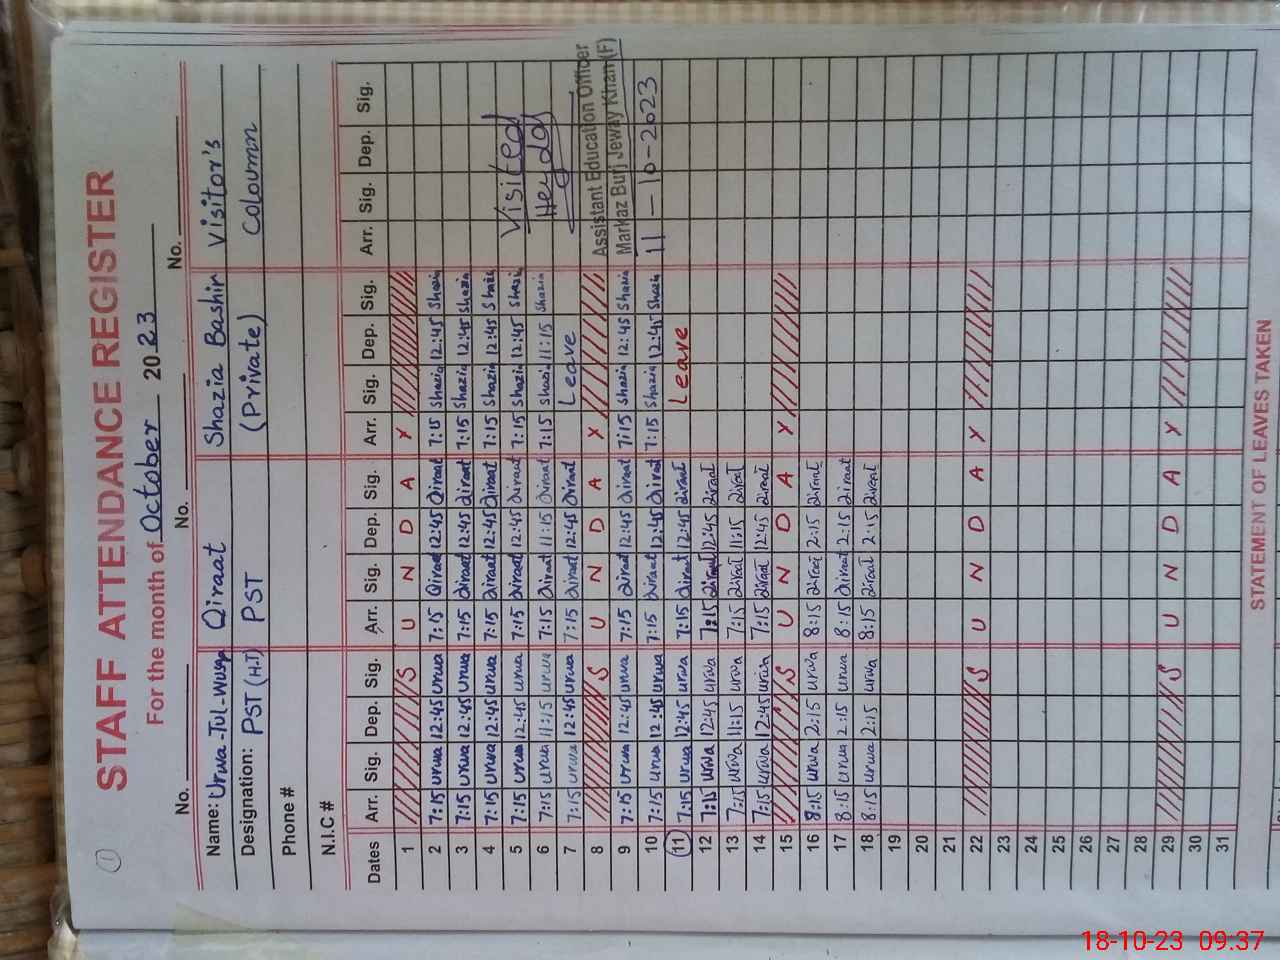 STAFF ATTENDANCE REGISTER
For the month of October 2023
No. No. No.
Name: Urwa-Tul-Wusqa Qiraat Shazia Bashir Visitor's
Designation: PST (H.T) PST (Private) Coloumn
Phone #
N.I.C #
Dates Arr. Sig. Dep. Sig. Arr. Sig. Dep. Sig. Arr. Sig. Dep. Sig. Arr. Sig. Dep. Sig.
1 S U N D A Y
2 7:15 Urwa 12:45 Urwa 7:15 Qiraat 12:45 Qiraat 7:15 Shazia 12:45 Shazia
3 7:15 Urwa 12:45 Urwa 7:15 Qiraat 12:45 Qiraat 7:15 Shazia 12:45 Shazia
4 7:15 Urwa 12:45 Urwa 7:15 Qiraat 12:45 Qiraat 7:15 Shazia 12:45 Shazia
5 7:15 Urwa 12:45 Urwa 7:15 Qiraat 12:45 Qiraat 7:15 Shazia 12:45 Shazia Visited
6 7:15 Urwa 11:15 Urwa 7:15 Qiraat 11:15 Qiraat 7:15 Shazia 11:15 Shazia
7 7:15 Urwa 12:45 Urwa 7:15 Qiraat 12:45 Qiraat Leave
8 S U N D A Y Assistant Education Officer
9 7:15 Urwa 12:45 Urwa 7:15 Qiraat 12:45 Qiraat 7:15 Shazia 12:45 Shazia Markaz Burj Jeway Khan (F)
10 7:15 Urwa 12:45 Urwa 7:15 Qiraat 12:45 Qiraat 7:15 Shazia 12:45 Shazia 11-10-2023
11 7:15 Urwa 12:45 Urwa 7:15 Qiraat 12:45 Qiraat Leave
12 7:15 Urwa 12:45 Urwa 7:15 Qiraat 12:45 Qiraat
13 7:15 Urwa 11:15 Urwa 7:15 Qiraat 11:15 Qiraat
14 7:15 Urwa 12:45 Urwa 7:15 Qiraat 12:45 Qiraat
15 S U N D A Y
16 8:15 Urwa 2:15 Urwa 8:15 Qiraat 2:15 Qiraat
17 8:15 Urwa 2:15 Urwa 8:15 Qiraat 2:15 Qiraat
18 8:15 Urwa 2:15 Urwa 8:15 Qiraat 2:15 Qiraat
19
20
21
22 S U N D A Y
23
24
25
26
27
28
29 S U N D A Y
30
31
STATEMENT OF LEAVES TAKEN
18-10-23 09:37